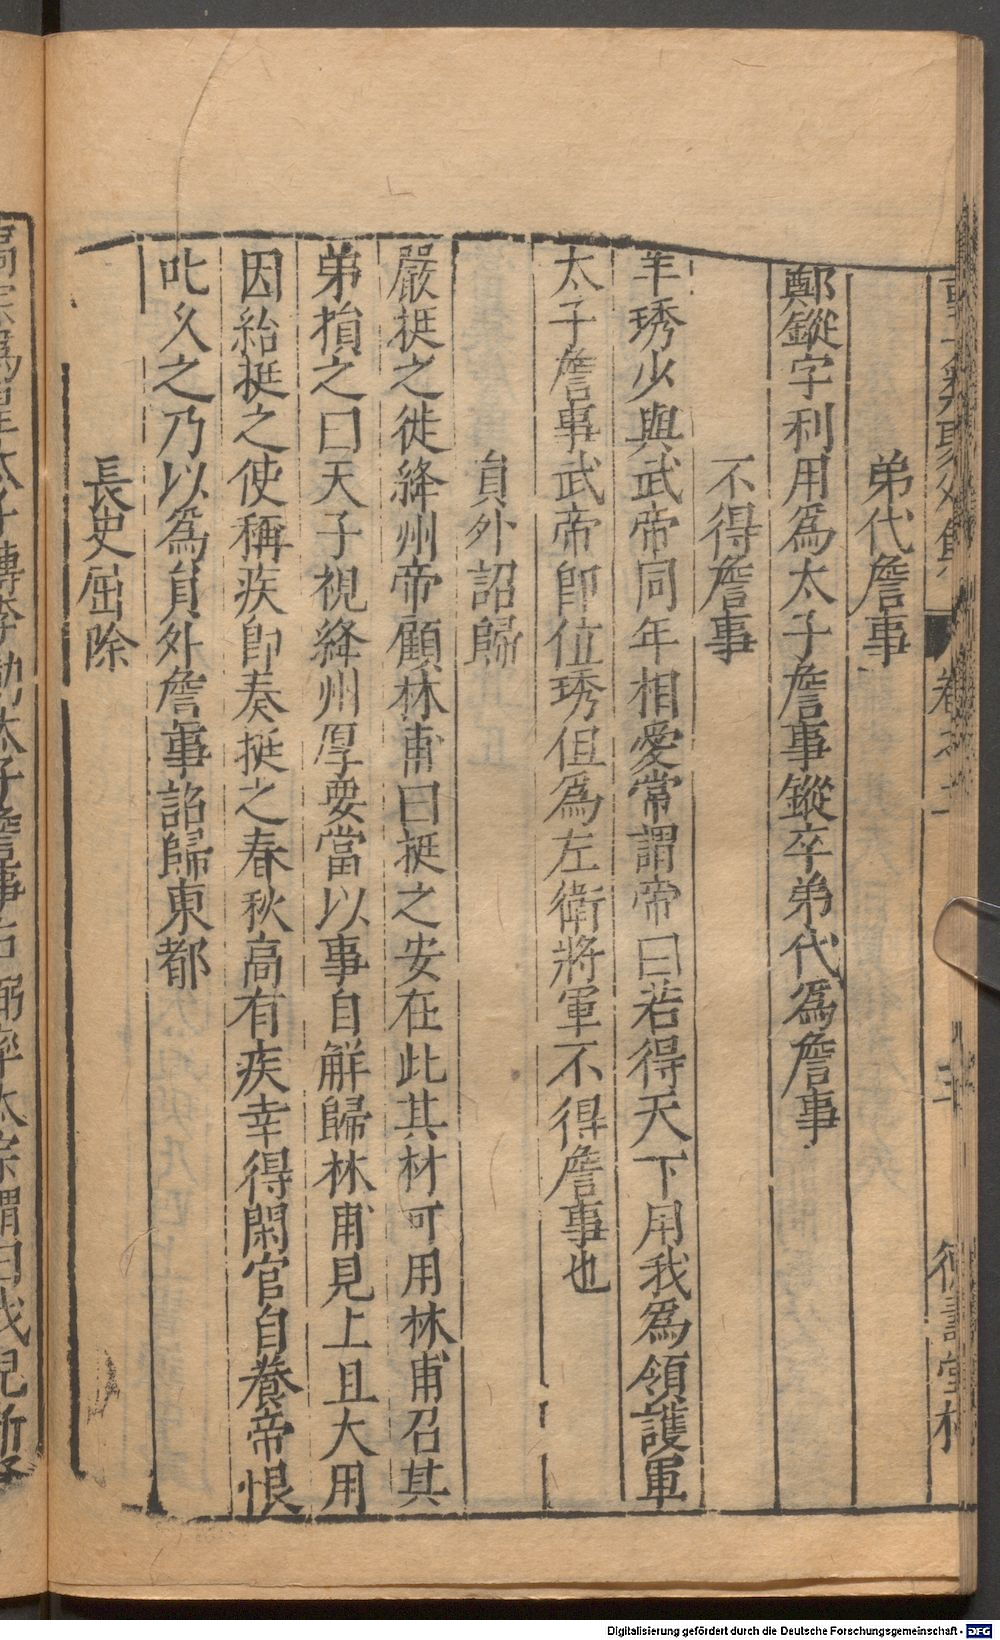 弟代詹事
鄭鏦字利用爲太子詹事鏦卒弟代爲詹事
不得詹事
羊琇少與武帝同年相愛常謂帝曰若得天下用我爲領護軍
太子詹事武帝卽位琇但爲左衛將軍不得詹事也
貟外詔歸
嚴挺之徙絳州帝顧林甫曰挺之安在此其材可用林甫召其
弟損之曰天子視絳州厚要當以事自解歸林甫見上且大用
因紿挺之使稱疾卽奏挺之春秋高有疾幸得閑官自養帝恨
叱久之乃以爲貟外詹事詔歸東都
長史屈除
太子詹事右 率太宗謂曰我兒新
Digitalisierung gefördert durch die Deutsche Forschungsgemeinschaft - DFG